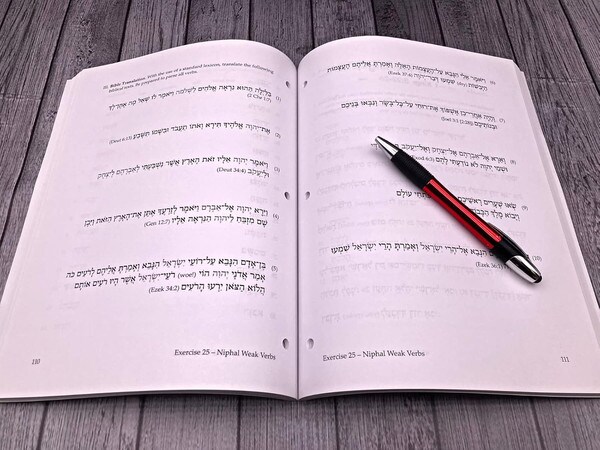 20. Bible Translation. With the use of a standard lexicon, translate the following
biblical texts. Be prepared to parse all verbs.
(1) בַּלַּיְלָה הַהוּא נִרְאָה אֱלֹהִים לִשְׁלֹמֹה וַיֹּאמֶר לוֹ שְׁאַל מָה אֶתֶּן־לָךְ
(2 Chr 1:7)
(2) אֶת־יְהוָה אֱלֹהֶיךָ תִּירָא וְאֹתוֹ תַעֲבֹד וּבִשְׁמוֹ תִּשָּׁבֵעַ (Deut 6:13)
(3) וַיֹּאמֶר יְהוָה אֵלָיו זֹאת הָאָרֶץ אֲשֶׁר נִשְׁבַּעְתִּי לְאַבְרָהָם לְיִצְחָק
וּלְיַעֲקֹב (Deut 34:4)
(4) וַיֵּרָא יְהוָה אֶל־אַבְרָם וַיֹּאמֶר לְזַרְעֲךָ אֶתֵּן אֶת־הָאָרֶץ הַזֹּאת וַיִּבֶן
שָׁם מִזְבֵּחַ לַיהוָה הַנִּרְאֶה אֵלָיו (Gen 12:7)
(5) בֶּן־אָדָם הִנָּבֵא עַל־רוֹעֵי יִשְׂרָאֵל הִנָּבֵא וְאָמַרְתָּ אֲלֵיהֶם לָרֹעִים כֹּה
אָמַר אֲדֹנָי יְהוִה הוֹי (woe!) רֹעֵי־יִשְׂרָאֵל אֲשֶׁר הָיוּ רֹעִים אוֹתָם
הֲלוֹא הַצֹּאן יִרְעוּ הָרֹעִים (Ezek 34:2)
110
Exercise 25 – Niphal Weak Verbs
(6) וַיֹּאמֶר אֵלַי הִנָּבֵא עַל־הָעֲצָמוֹת הָאֵלֶּה וְאָמַרְתָּ אֲלֵיהֶם הָעֲצָמוֹת
הַיְבֵשׁוֹת (dry) שִׁמְעוּ דְּבַר־יְהוָה (Ezek 37:4)
(7) וְהָיָה אַחֲרֵי־כֵן אֶשְׁפּוֹךְ אֶת־רוּחִי עַל־כָּל־בָּשָׂר וְנִבְּאוּ בְּנֵיכֶם
וּבְנוֹתֵיכֶם (Joel 3:1 [2:28])
(8) וָאֵרָא אֶל־אַבְרָהָם אֶל־יִצְחָק וְאֶל־יַעֲקֹב
וּשְׁמִי יְהוָה לֹא נוֹדַעְתִּי לָהֶם (Exod 6:3)
(9) שְׂאוּ שְׁעָרִים רָאשֵׁיכֶם עוֹלָם
וְיָבוֹא מֶלֶךְ
(10) הִנָּבֵא אֶל־הָרֵי יִשְׂרָאֵל וְאָמַרְתָּ הָרֵי יִשְׂרָאֵל שִׁמְעוּ
(Ezek 36:1)
Exercise 25 – Niphal Weak Verbs
111